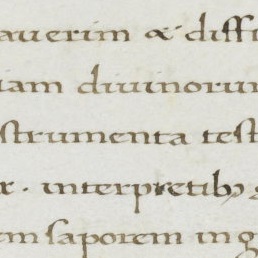 auerim & diffi
iam diuinorum
strumenta test
r. interpretib;
em saporem in g